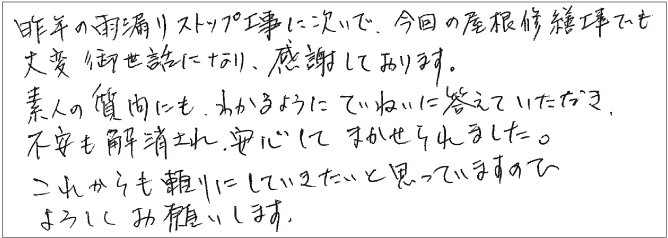 昨年の雨漏りストップ工事に次いで、今回の屋根修繕工事でも
大変御世話になり、感謝しております。
素人の質問にも、わかるようにていねいに答えていただき、
不安も解消され、安心して まかせられました。
これからも頼りにしていきたいと思っていますので
よろしくお願いします。